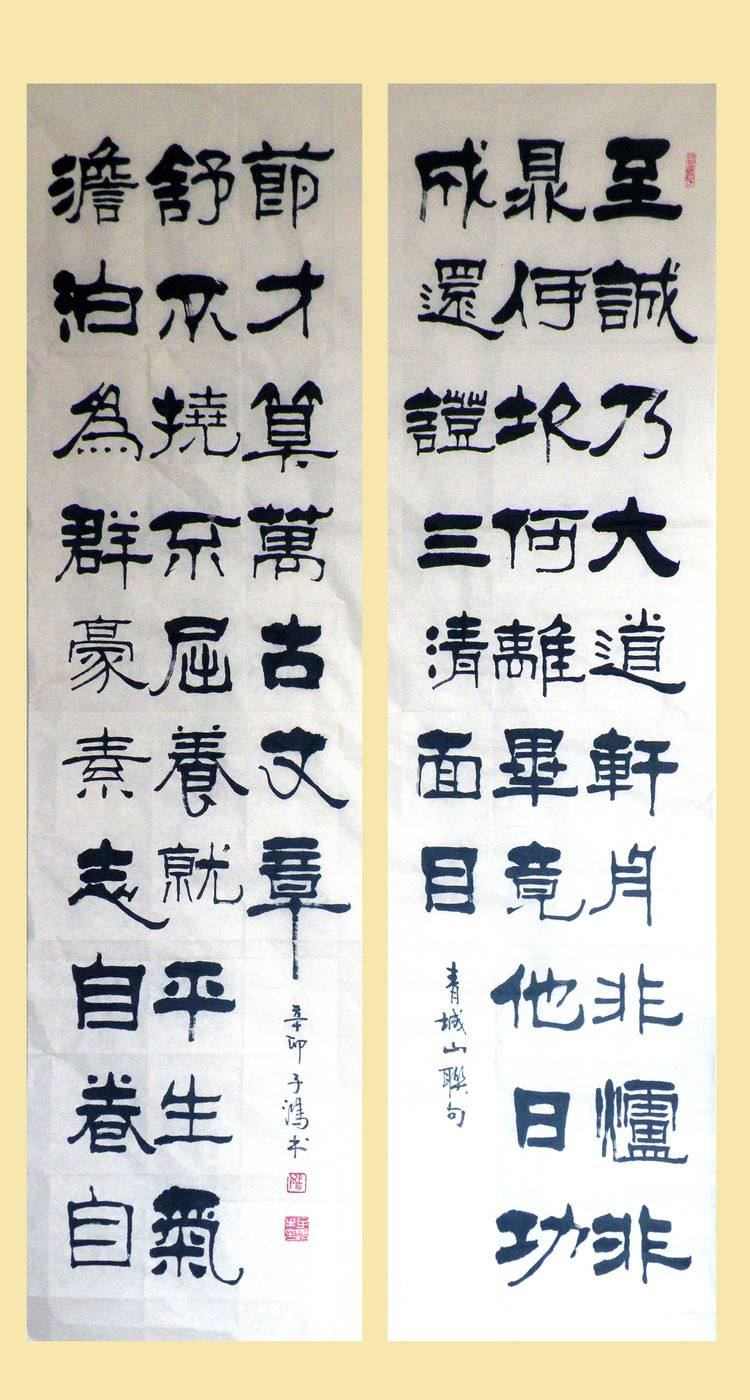 至誠乃大道軒非爐非
鼎何坎何離畢竟他日功
成還證三清面目
青城山聯句
澹泊為群豪素志自卷自
舒不撓不屈養就平生氣
節才算萬古文章
辛卯子鴻书